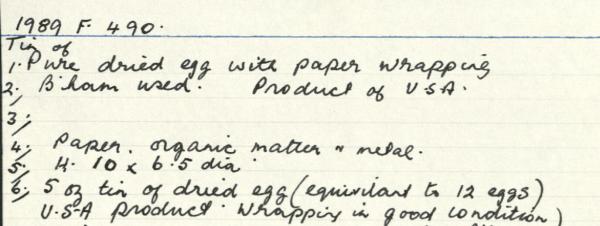 1989 F. 490.
Tin of
1. Pure dried egg with paper wrapping
2. B'ham used. Product of U.S.A.
3.
4. Paper. organic matter & metal.
5. H. 10 x 6.5 dia
6. 5 oz tin of dried egg (equivilant to 12 eggs)
U.S.A product. Wrapping in good condition)